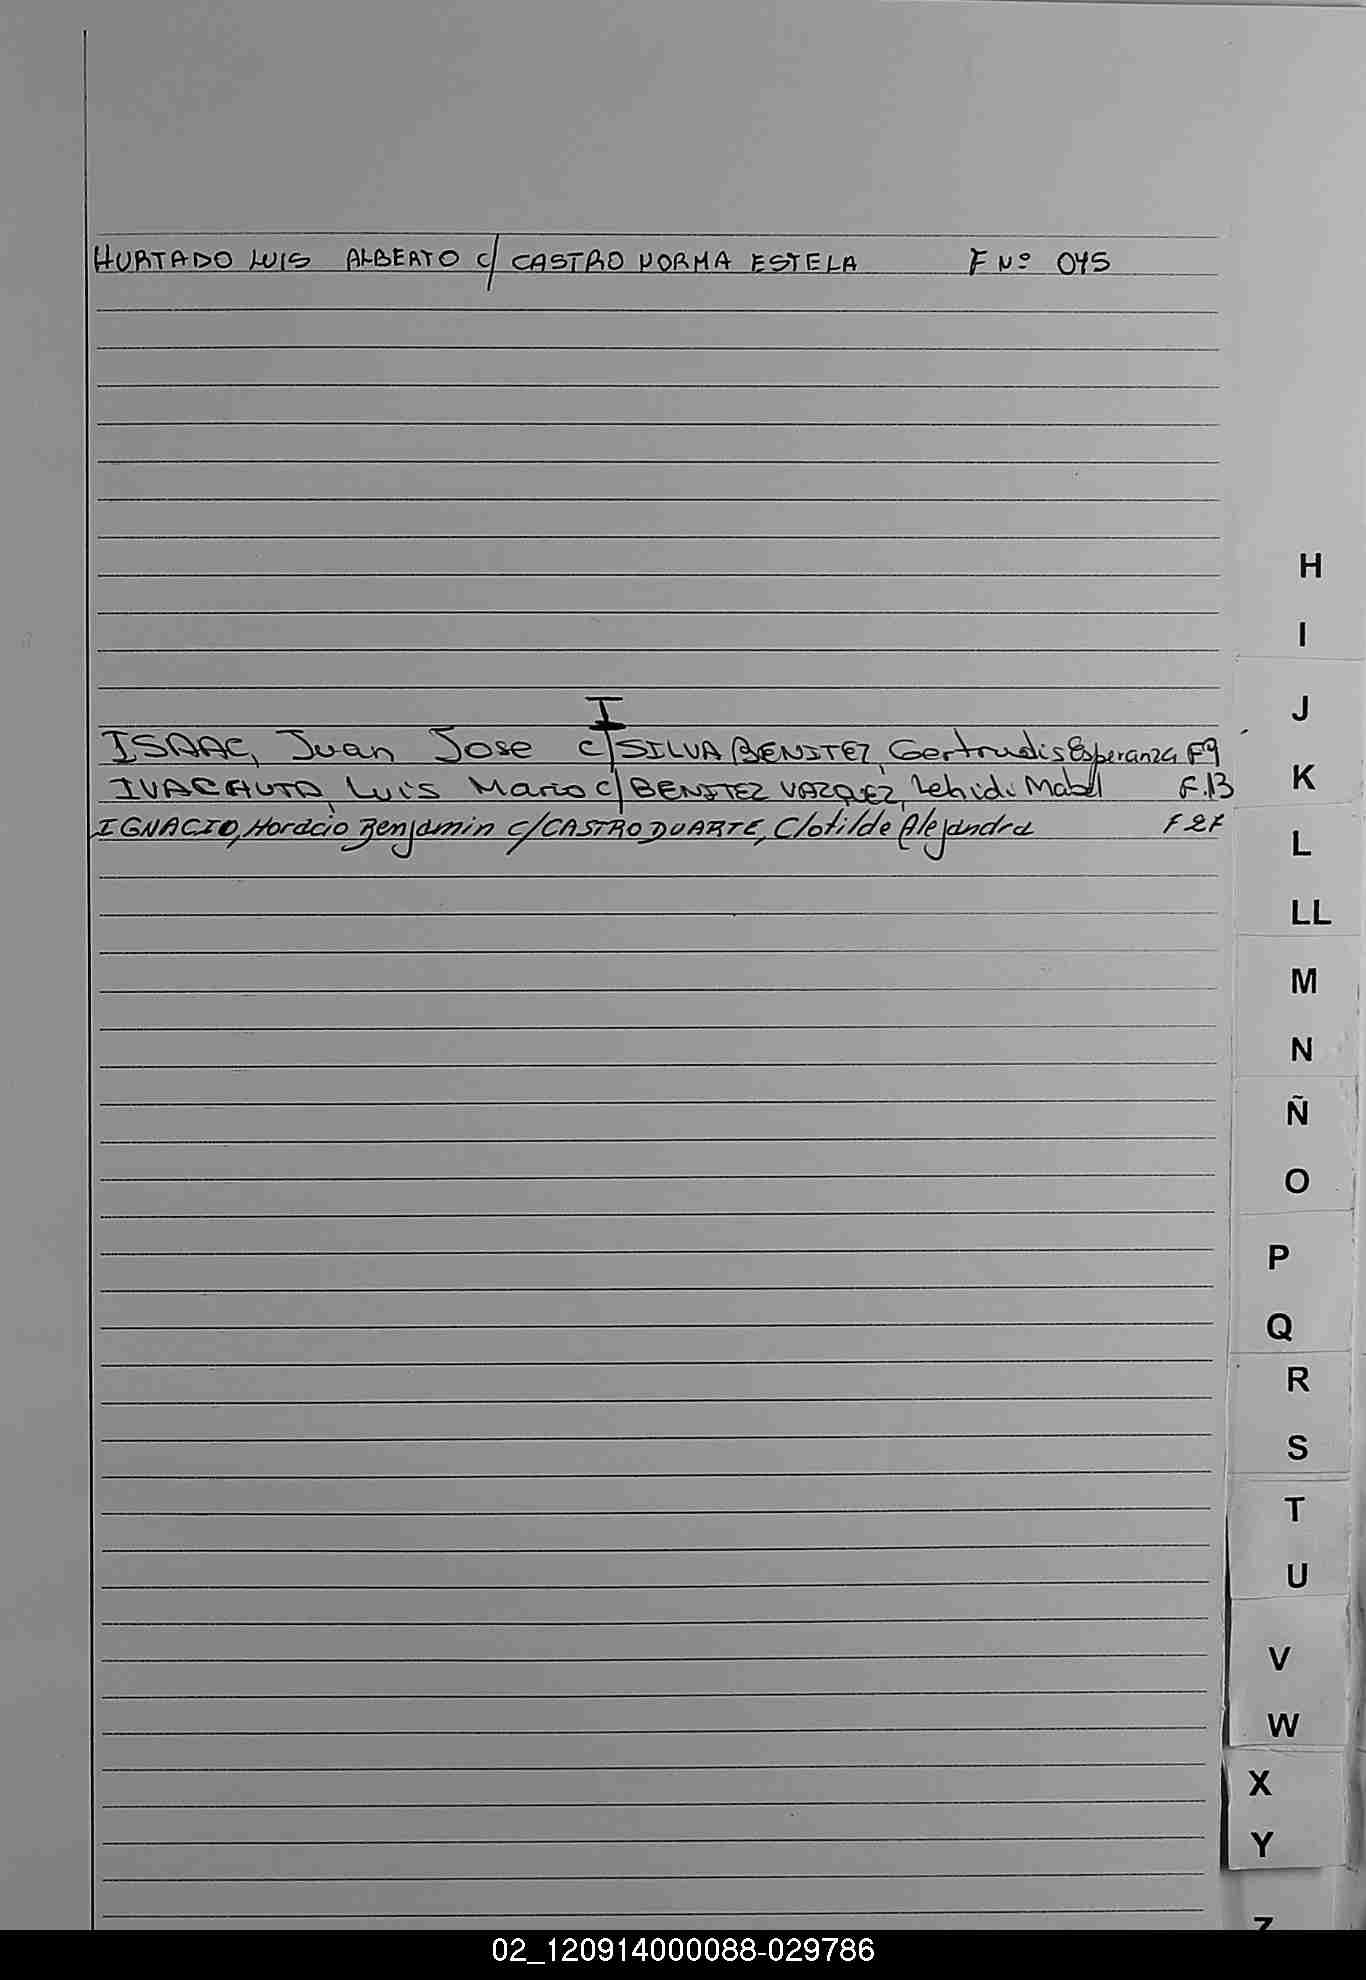 HURTADO LUIS ALBERTO c/ CASTRO NORMA ESTELA F Nº 045
I
ISAAC, Juan Jose c/ SILVA BENITEZ, Gertrudis Esperanza F9
IVACAUTA, Luis Mario c/ BENITEZ VAZQUEZ, Lehidi Mabel F.13
IGNACIO, Horacio Benjamin c/ CASTRO DUARTE, Clotilde Alejandra
H
I
J
K
L
LL
M
N
Ñ
O
P
Q
R
S
T
U
V
W
X
Y
Z
02_120914000088-029786